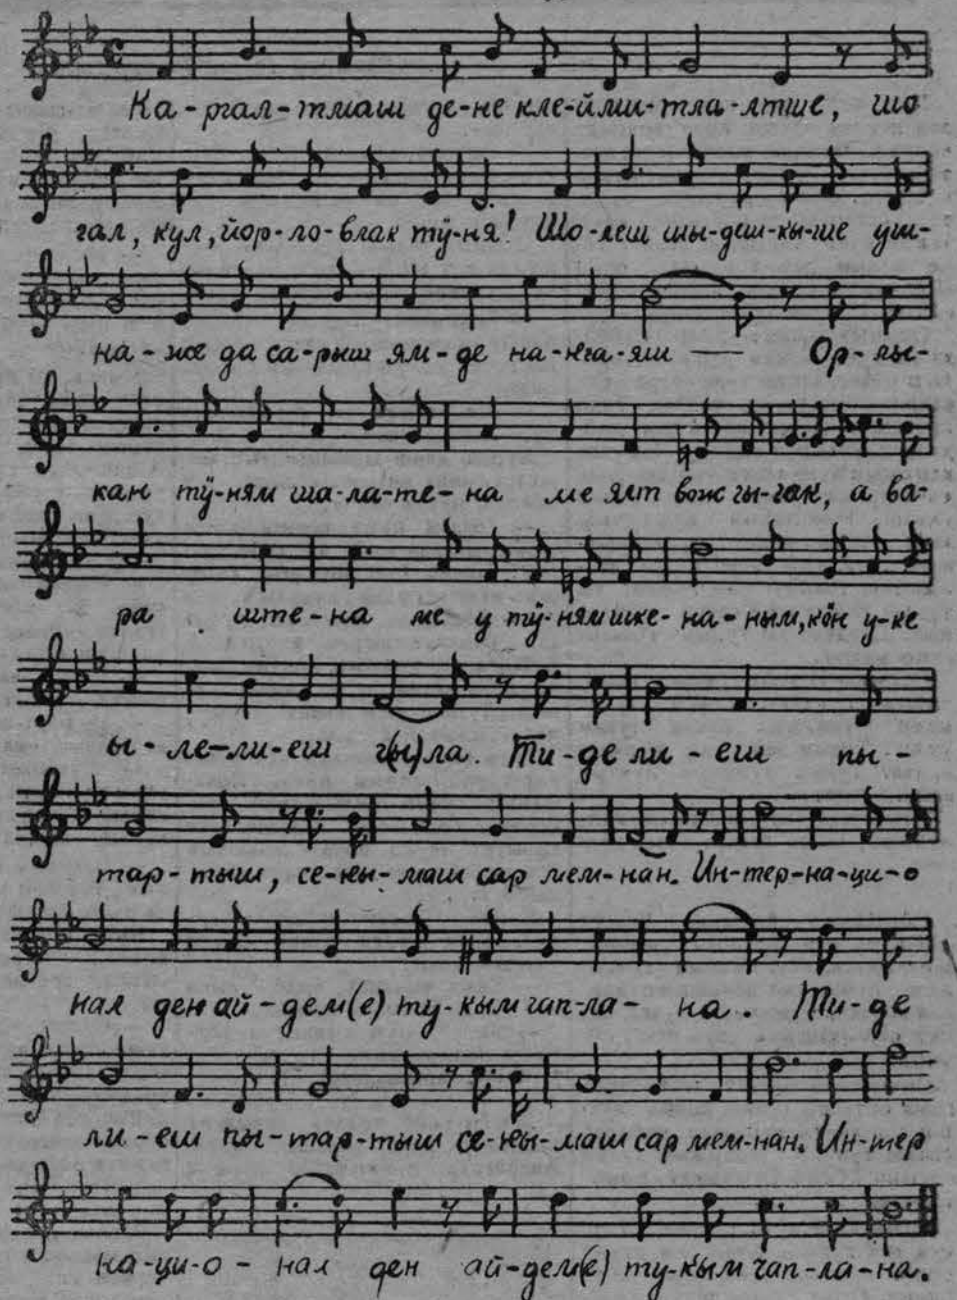 Ка-ргал-тмаш де-не кле-йми-тла-лтше, шо
гал, кул, йор-ло-влак тӱ-ня! Шо-леш шы-деш-кы-ше уш-
на-же да са-рыш ям-де на-нга-яш — Ор-лы-
кан тӱ-ням ша-ла-те-на ме ялт вож гы-чак, а ва-
ра ыште-на ме у тӱ-ням шке-на-ным, кӧн у-ке
ы-ле-ли-еш ч(ы)ла. Ти-де ли-еш пы-
тар-тыш, се-ҥы-маш сар мем-нан. Ин-тер-на-ци-о
нал ден ай-дем(е) ту-кым чап-ла-на. Ти-де
ли-еш пы-тар-тыш се-ҥы-маш сар мем-нан. Ин-тер
на-ци-о-нал ден ай-дем(е) ту-кым чап-ла-на.